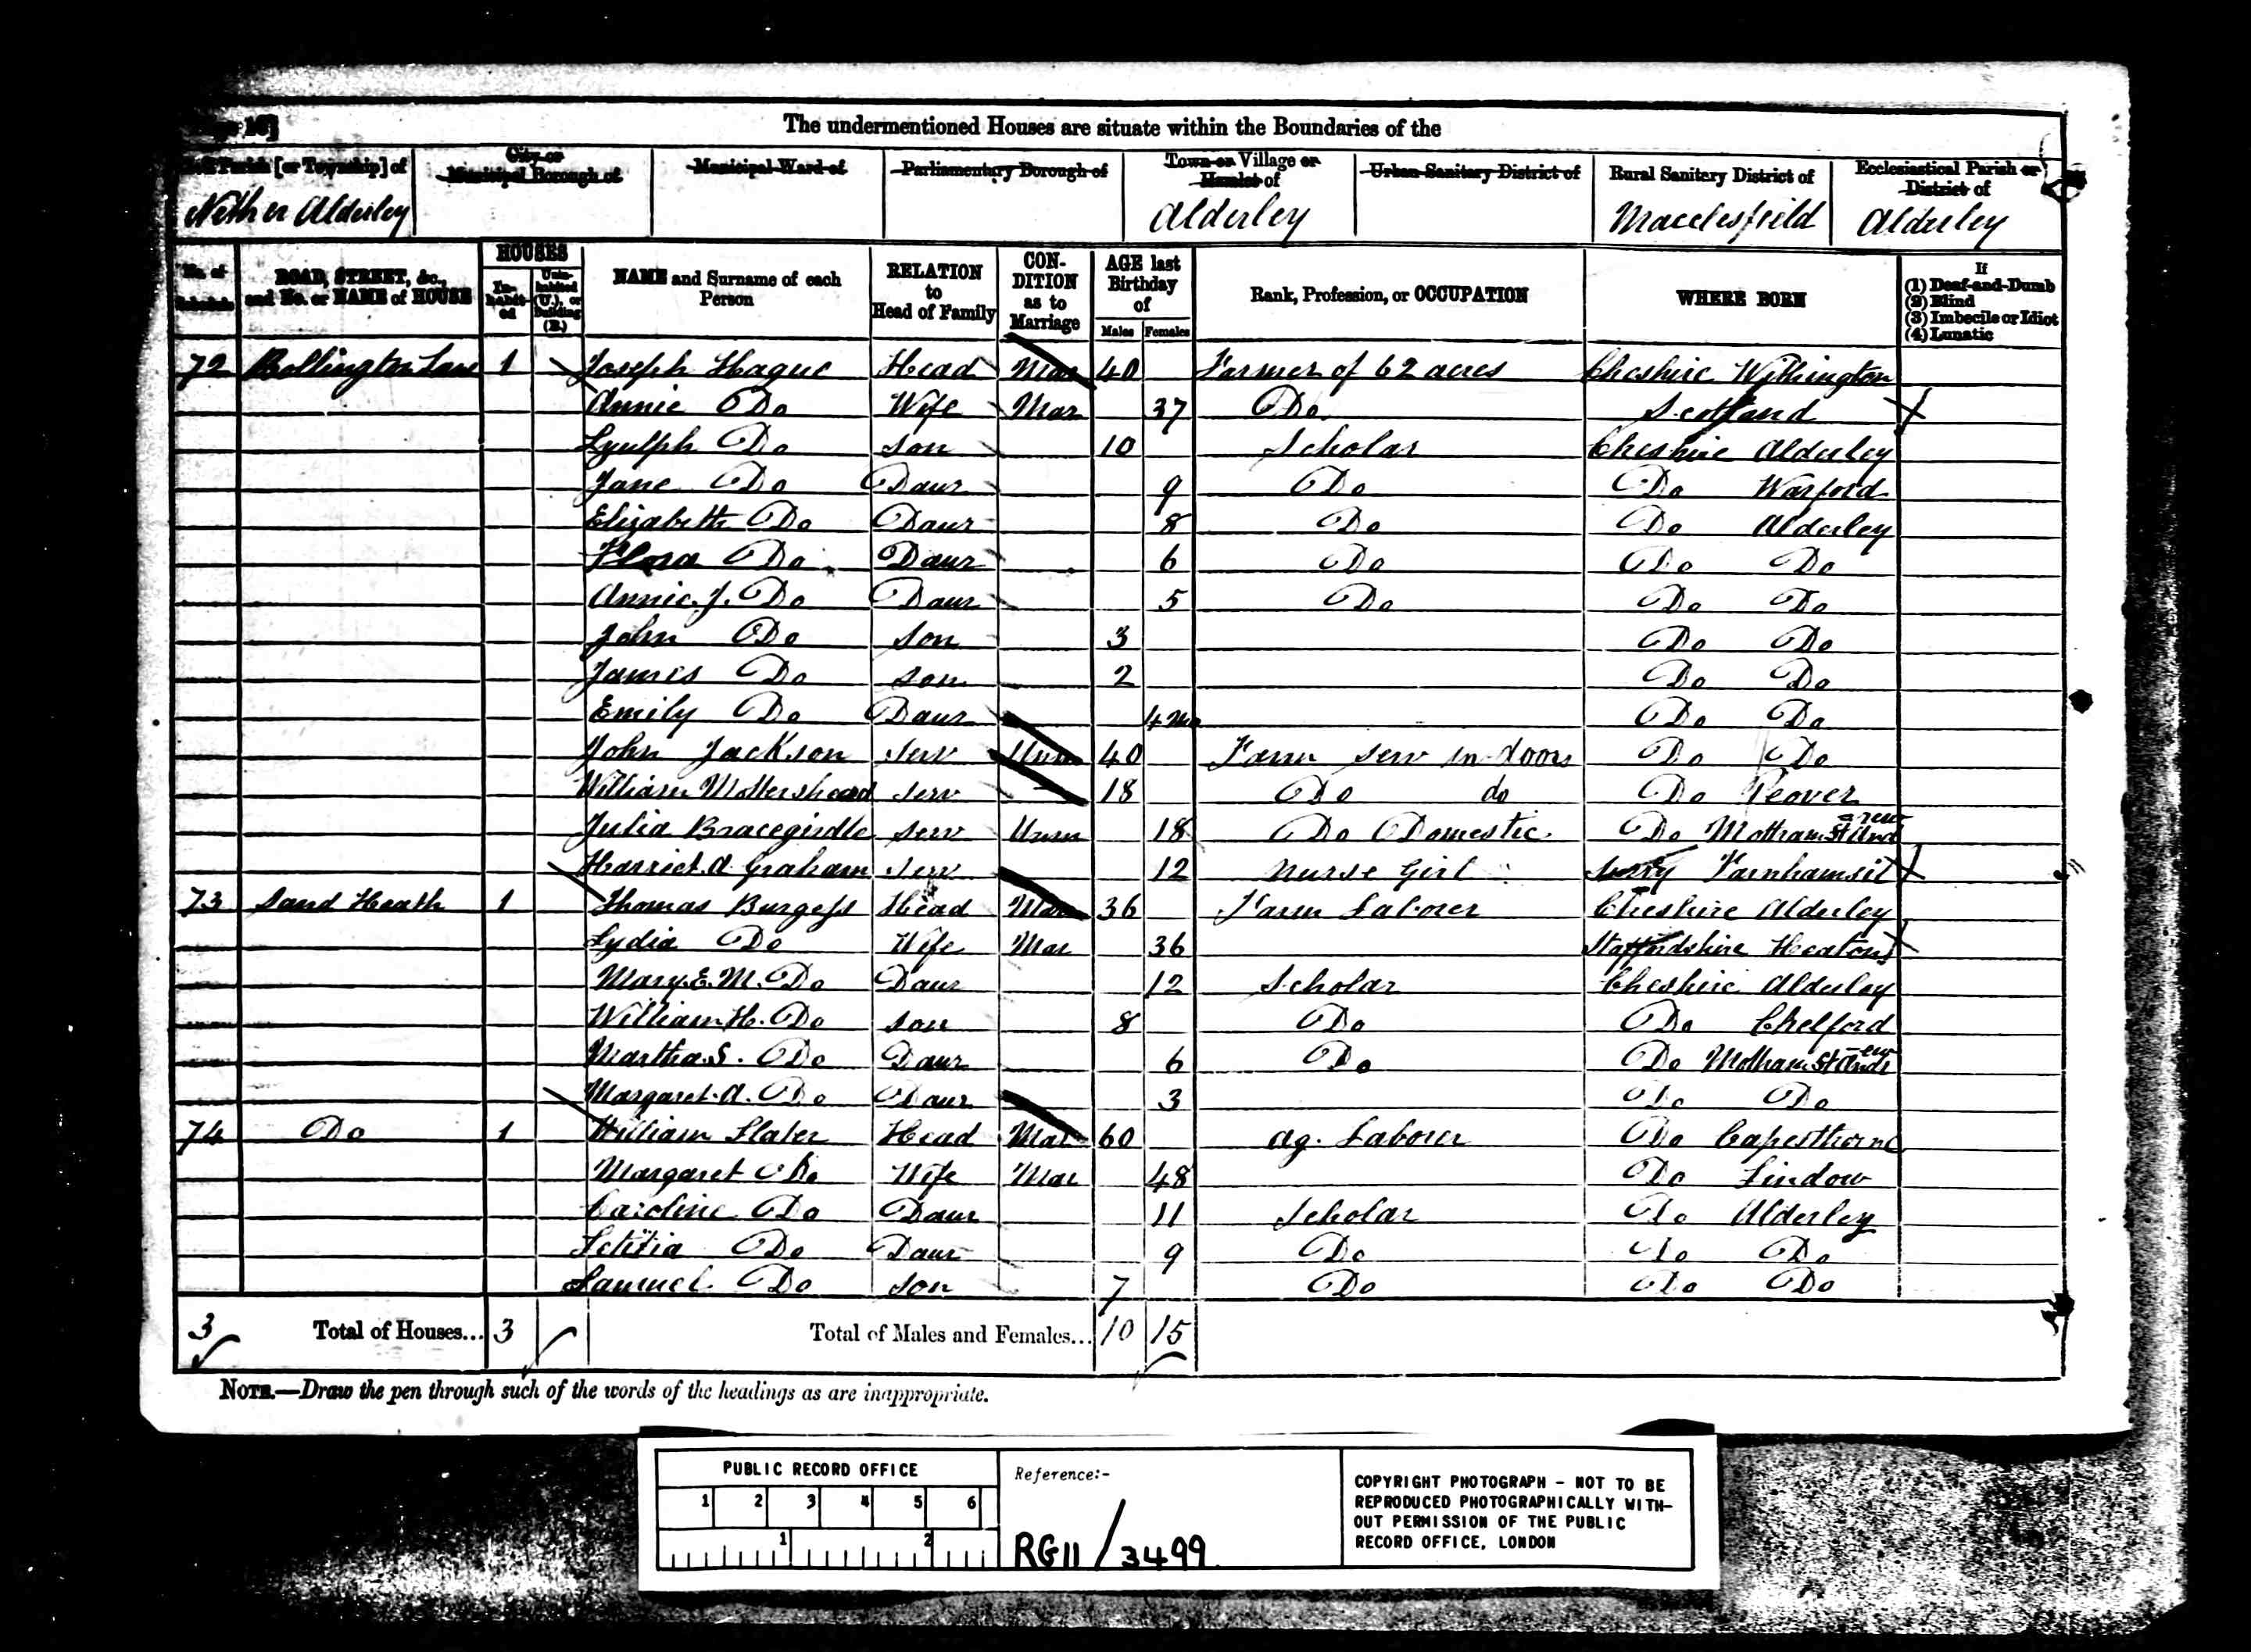 The undermentioned Houses are situate within the Boundaries of the
Parish [or Township] of
City or Municipal Borough of
Municipal Ward of
Parliamentary Borough of
Town or Village or Hamlet of
Urban Sanitary District of
Rural Sanitary District of
Ecclesiastical Parish or District of
Nether Alderley Alderley Macclesfield Alderley
No. of Schedule
ROAD, STREET, &c., and No. or NAME of HOUSE
HOUSES
In-habit-ed
Unin-habited (U.), or Building (B.)
NAME and Surname of each Person
RELATION to Head of Family
CON-DITION as to Marriage
AGE last Birthday of
Males Females
Rank, Profession, or OCCUPATION
WHERE BORN
If
(1) Deaf-and-Dumb
(2) Blind
(3) Imbecile or Idiot
(4) Lunatic
72 Bollington Lane 1 Joseph Hague Head Mar 40 Farmer of 62 acres Cheshire Withington
Annie Do Wife Mar 37 Do Scotland
Lyulph Do son 10 Scholar Cheshire Alderley
Jane Do Daur 9 Do Do Warford
Elizabeth Do Daur 8 Do Do Alderley
Flora Do Daur 6 Do Do Do
Annie. J. Do Daur 5 Do Do Do
John Do son 3 Do Do
James Do son 2 Do Do
Emily Do Daur 4 mo Do Do
John Jackson Serv Unm 40 Farm Serv in-doors Do Do
William Mottershead Serv 18 Do do Do Peover
Julia Bracegirdle Serv Unm 18 Do Domestic Do Mottram St Andrew
Harriet. A Graham Serv 12 Nurse Girl
73 Sand Heath 1 Thomas Burgess Head Mar 36 Farm Laborer Cheshire Alderley
Lydia Do Wife Mar 36 Staffordshire Heaton
Mary. E. M. Do Daur 12 Scholar Cheshire Alderley
William H. Do son 8 Do Do Chelford
Martha. S. Do Daur 6 Do Do Mottram St Andrew
Margaret. A. Do Daur 3 Do Do
74 Do 1 William Slater Head Mar 60 Ag. Laborer Do Capesthorne
Margaret Do Wife Mar 48 Do Lindow
Caroline Do Daur 11 Scholar Do Alderley
Letitia Do Daur 9 Do Do Do
Samuel Do son 7 Do Do Do
3 Total of Houses... 3 Total of Males and Females... 10 15
NOTE.—Draw the pen through such of the words of the headings as are inappropriate.
PUBLIC RECORD OFFICE
1 2 3 4 5 6
1 2
Reference:-
RG11/3499
COPYRIGHT PHOTOGRAPH - NOT TO BE
REPRODUCED PHOTOGRAPHICALLY WITH-
OUT PERMISSION OF THE PUBLIC
RECORD OFFICE, LONDON